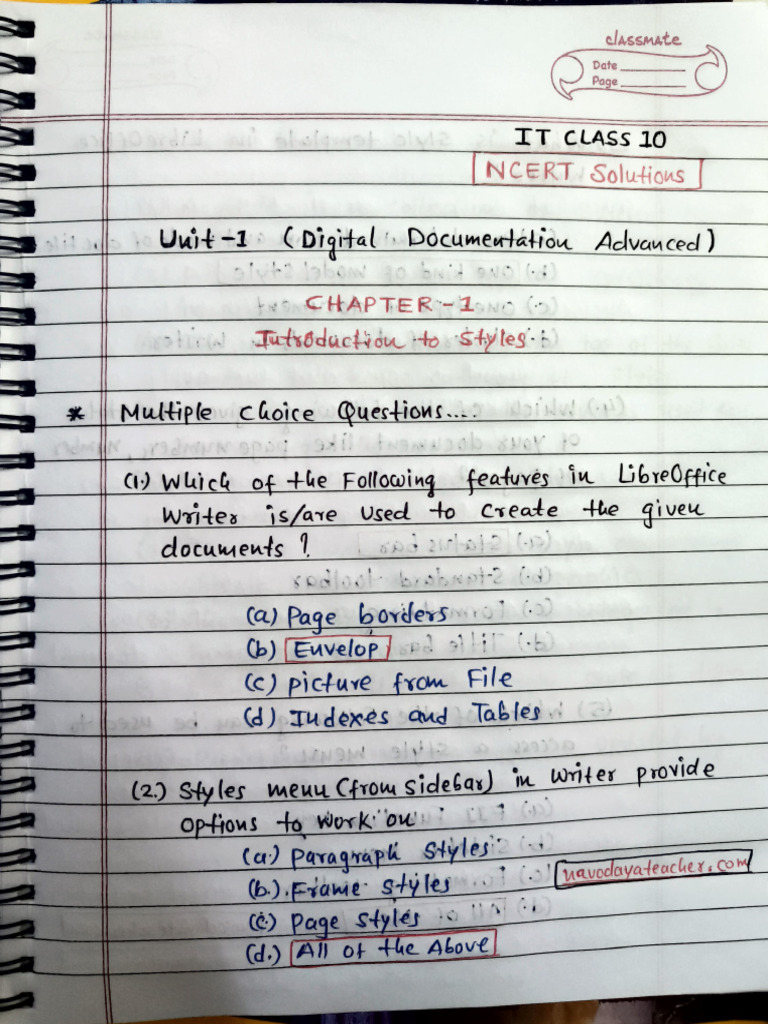 classmate
Date
Page
IT CLASS 10
NCERT Solutions
Unit-1 (Digital Documentation Advanced)
CHAPTER-1
Introduction to Styles
* Multiple Choice Questions....
(1.) Which of the Following features in LibreOffice
Writer is/are used to create the given
documents?
(a) Page borders
(b) Envelop
(c) picture from File
(d) Indexes and Tables
(2.) Styles menu (from sidebar) in writer provide
options to work on
(a.) Paragraph Styles
(b.) Frame styles
navodayateacher.com
(c) Page styles
(d.) All of the Above